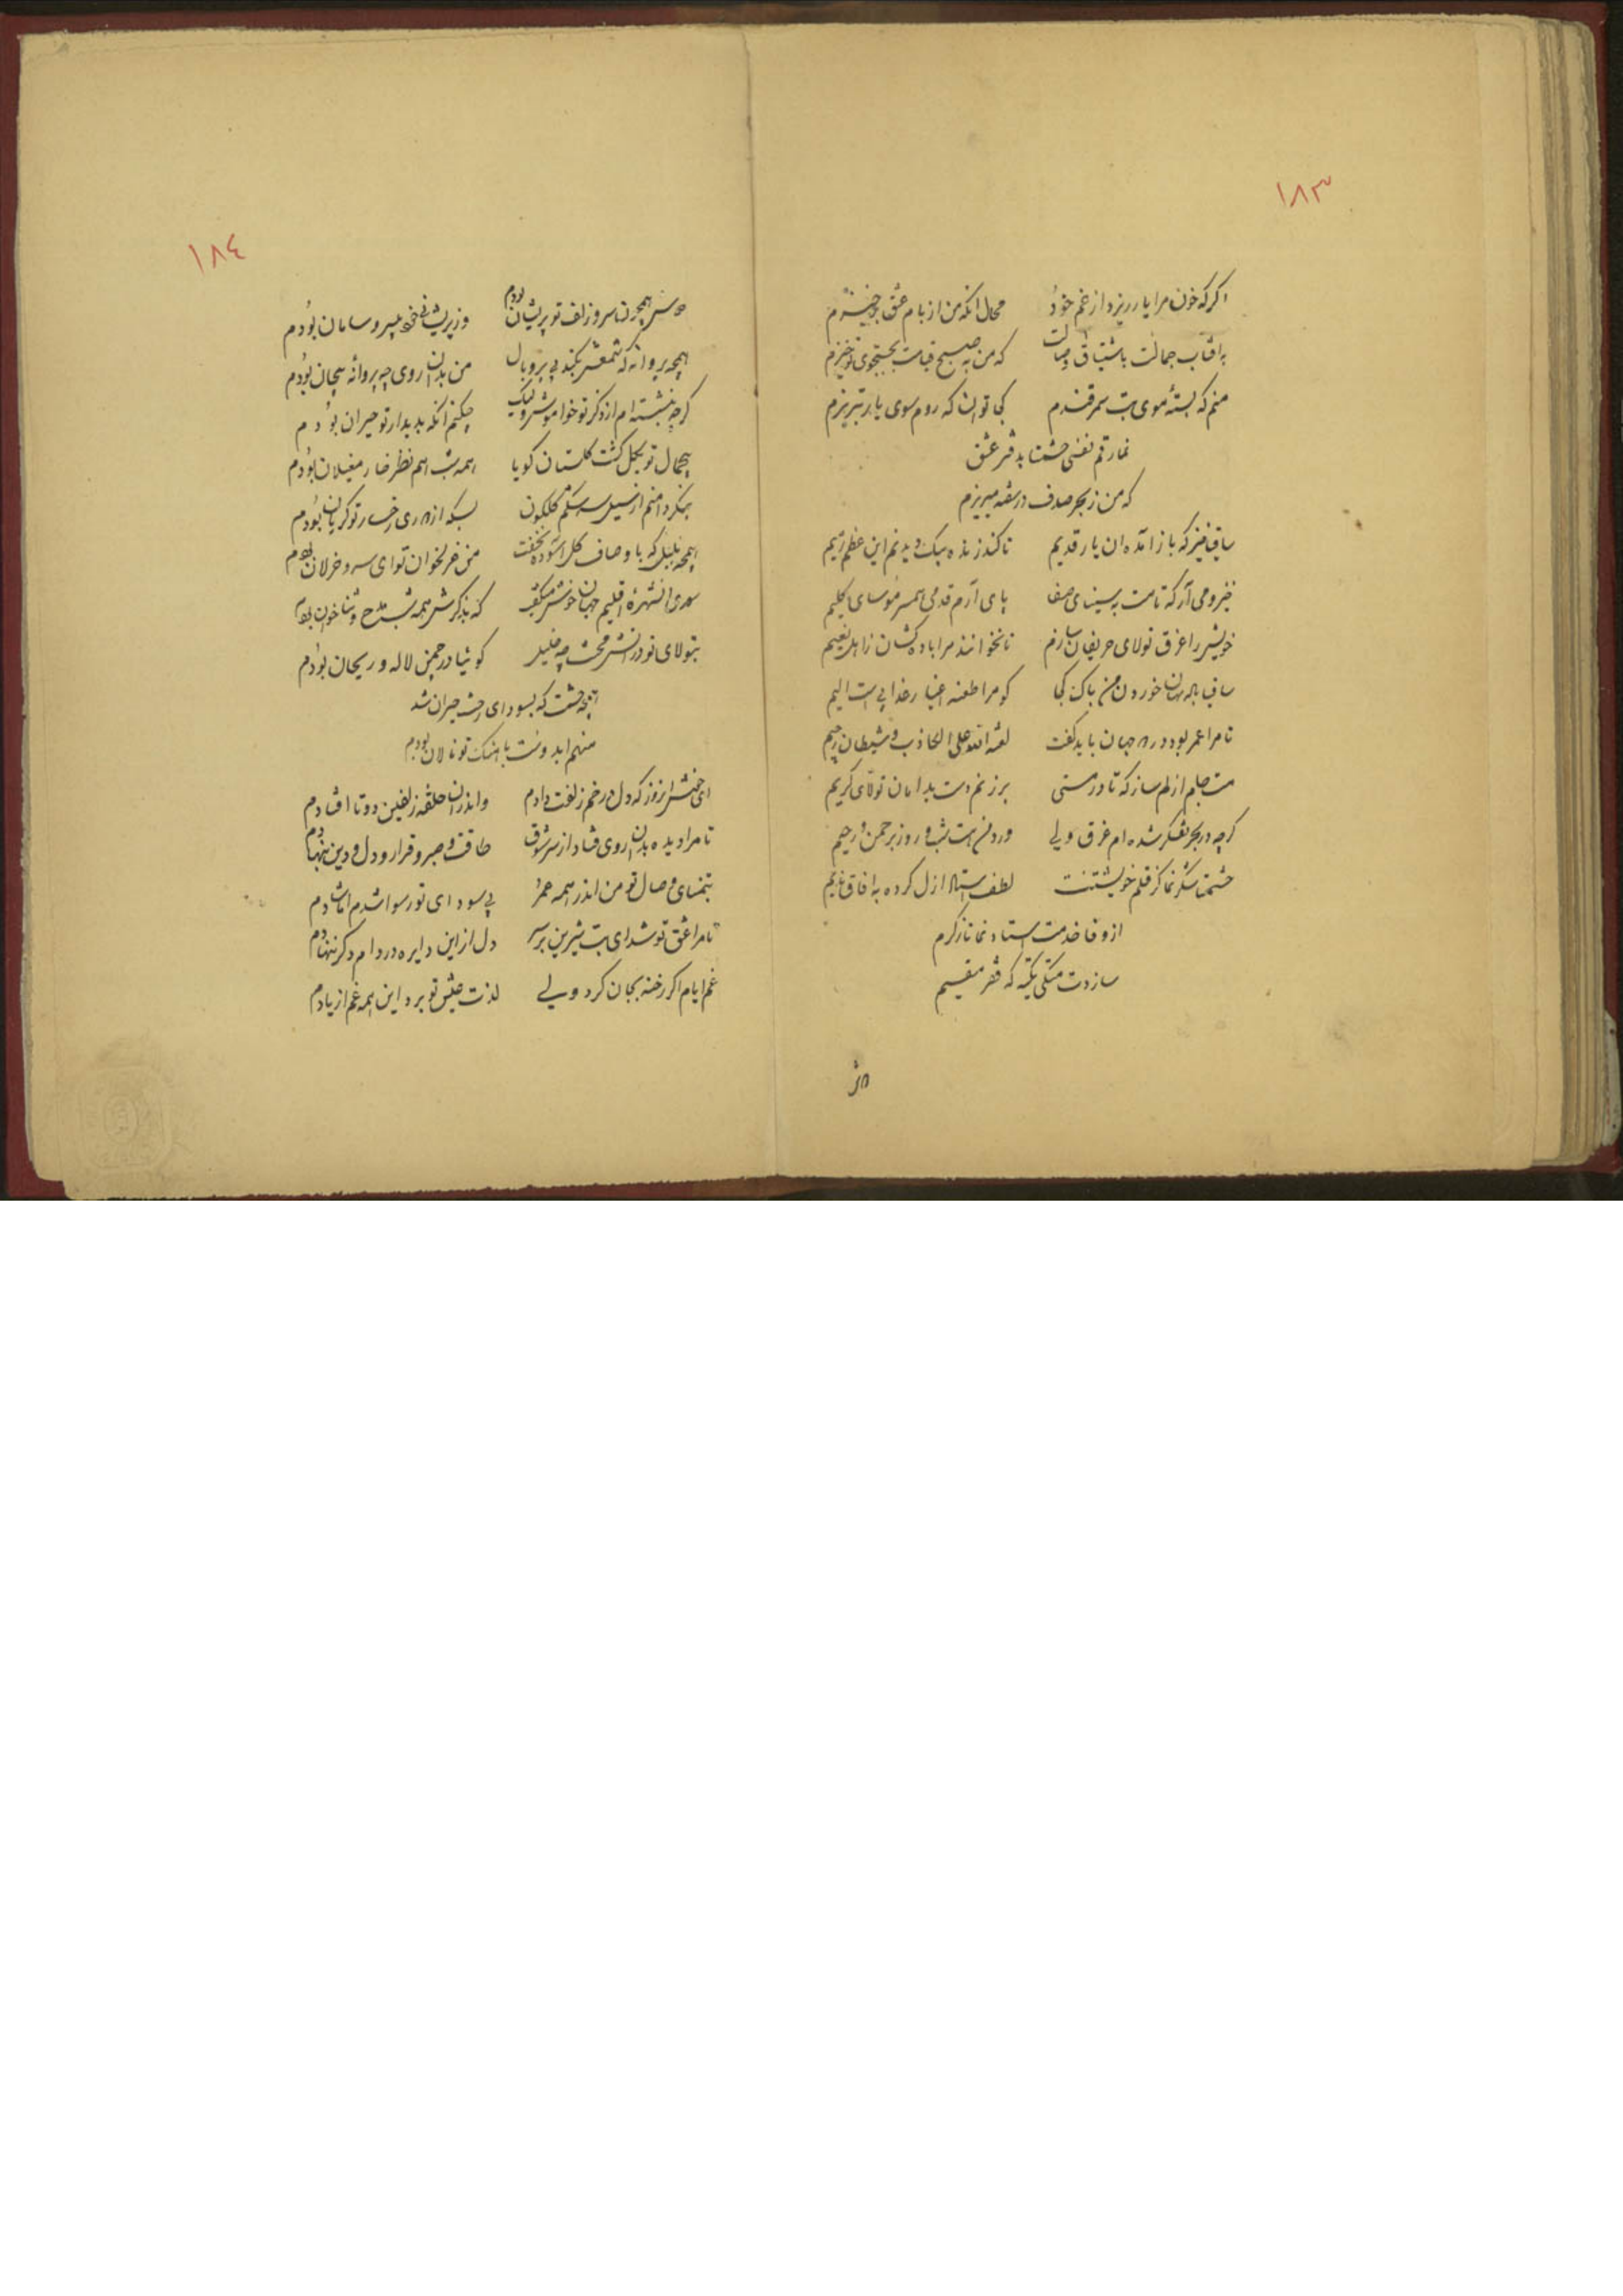 ۱۸۳
اگر که خون مرا یار ریزد از غم خود محال انکه من از بام عشق برخیزم
به افتاب جمالت باشتیاق وصالت که من به صبح قیامت بجستجوی تو خیزم
منم که بستهٔ موی بت سمرقندم کجا توان که روم سوی یار تبریزم
نما رقم نفسی حشمتا بدفتر عشق
که من ز بحر صدف در سفته میریزم
ساقیا خیز که باز آمده ان یار قدیم تا کند زنده بیک دیدنم این عظم رمیم
خیز و می آر که تا مست به سینای صفا پای آرم قدمی همسر موسای کلیم
خویش را غرق تولای حریفان سازم تا نخوانند مرا باده کشان ز اهل نعیم
ساقیا خوردن من باک کجا کو مرا طعنه اغیار عذابی است الیم
تا مرا عمر بود در جهان باید گفت لعنة الله علی الکاذب و شیطان رجیم
مست جامم از لم ساز که تا در مستی برزنم دست بدامان تولای کریم
گرچه در بحر تفکر شده ام غرق ولی ورد من هست شب و روز برحمن و رحیم
حشمتا شکر نما کز قلم خویشتنت لطف استاد ازل کرده به افاق ندیم
از وفا خدمت استاد نما تا ز کرم
سازدت متکی تکیه که فقر مقیم
۱۸٤
دوش همچون سر زلف تو پریشان بودم وز پریشانی خود بیسر و سامان بودم
همچو پروانه که شمعش بکند بی پر و بال من بدان روی چه پروانه بیجان بودم
گرچه بنشسته ام از ذکر تو خواموش ولیک چکنم انکه بدیدار تو حیران بودم
بیجمال تو بگل گشت گلستان گویا همه شب هم نظر خار مغیلان بودم
بنگر دامنم از سیل سرشکم گلگون بسکه از دوری رخسار تو گریان بودم
همچو بلبل که باوصاف گل اسوده نخفت من غزلخوان تو ای سرو خرامان بودم
سعدی ان شهرهٔ اقلیم جهان خوش میگفت که بذکرش همه شب مدح و ثنا خوان بودم
بتولای تو در اتش محنت چه خلیل گوئیا در چمن لاله و ریحان بودم
نیمه حشمت که بسودای رخت حیران شد
منهم اید وست باهنگ تو نالان بودم
ای خوش انروز که دل در خم زلفت دادم واندران حلقه زلفین دوتا افتادم
تا مرا دیده بدان روی فتاد از سر شوق طاقت و صبر و قرار و دل و دین بنهادم
بتمنای وصال تو من اندر همه عمر پی سودای تو رسوا شدم اما شادم
تا مرا عشق تو شد ای بت شیرین بر سر دل از این دایره در دام دگر ننهادم
غم ایام اگر رخنه بجان کرد ولی لذت عشق تو برد این همه غم از یادم